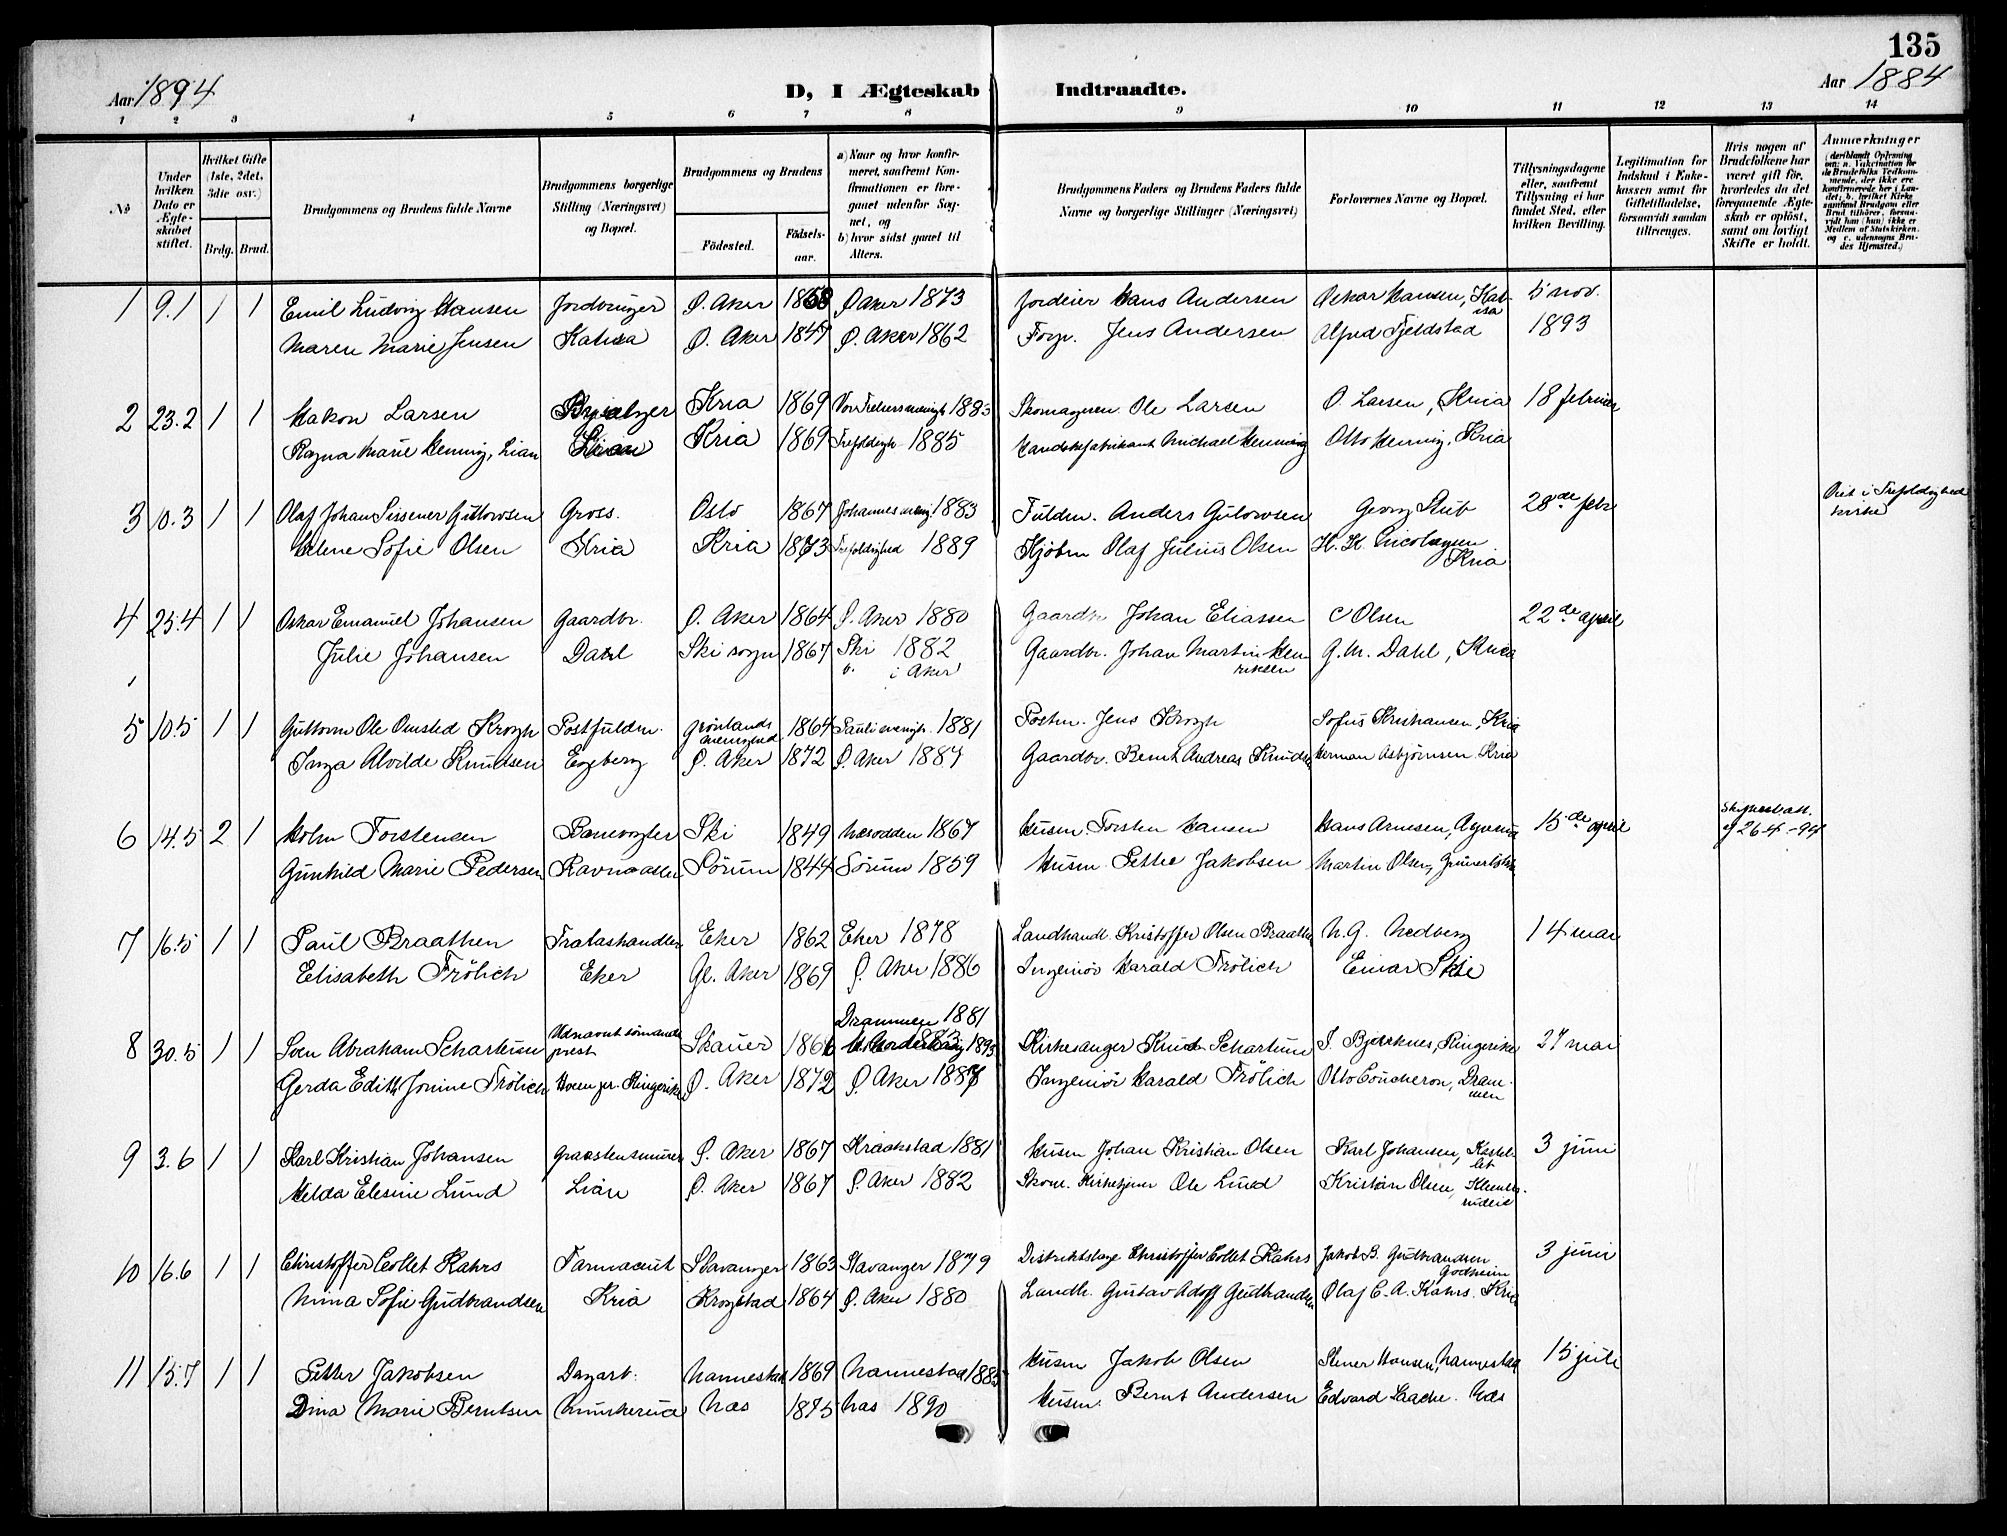 135
Aar 1894
D, I Ægteskab Indtraadte.
Aar 1884
1 2 3 4 5 6 7 8 9 10 11 12 13 14
No
Under hvilken Dato er Ægteskabet stiftet.
Hvilket Gifte (1ste, 2det, 3die osv.)
Brdg. Brud.
Brudgommens og Brudens fulde Navne
Brudgommens borgerlige Stilling (Næringsvei) og Bopæl.
Brudgommens og Brudens
Födested.
Födsels-aar.
a) Naar og hvor konfirmeret, saafremt Konfirmationen er foregaaet udenfor Sognet, og
b) hvor sidst gaaet til Alters.
Brudgommens Faders og Brudens Faders fulde Navne og borgerlige Stillinger (Næringsvei)
Forlovernes Navne og Bopæl.
Tillysningsdagene eller, saafremt Tillysning ei har fundet Sted, efter hvilken Bevilling.
Legitimation for Indskud i Enkekassen samt for Giftetilladelse, forsaavidt saadan tiltrænges.
Hvis nogen af Brudefolkene har været gift för, hvorledes da det foregaaende Ægteskab er oplöst, samt om lovligt Skifte er holdt.
Anmærkninger
1 9.1 1 1 Emil Ludvig Hansen Jordbruger Ø. Aker 1858 Ø Aker 1873 Jordeier Hans Andersen Oskar Hansen, Kabisa 5 nov.
Maren Marie Jensen Katisa Ø. Aker 1847 Ø. Aker 1862 Forp. Jens Andersen Alfred Fjeldstad 1893
2 23.2 1 1 Hakon Larsen Kria 1869 Vor Frelsers menigh 1883 Skomageren Ole Larsen O. Larsen, Kria 18 februar
Ragna Marie Henning, Lian Kria 1869 Trefoldigh 1885 Handskefabrikant Michael Henning Otto Henning, Kria
3 10.3 1 1 Olaf Johan Sissener Gulowsen Gross. Oslo 1867 Johannes menig. 1883 Fuldm. Anders Gulowsen Georg Stub 28de febr Viet i Trefoldighed kirke
Helene Sofie Olsen Kria Kria 1873 Trefoldighed 1889 Kjöbm Olaf Julius Olsen H. H. Nicolaysen Kria
4 25.4 1 1 Oskar Emanuel Johansen Gaardbr. Ø. Aker 1864 Ø. Aker 1880 Gaardbr Johan Eliassen C Olsen 22de april
Julie Johansen Dahl Ski sogn 1867 Ski 1882 Gaardbr. Johan Martin Henriksen G. M. Dahl, Kria
b. i Aker
5 10.5 1 1 Guttorm Ole Omsted Krogh Postfuldm. Grönlands menighed 1864 Pauli menigh. 1881 Postm. Jens Krogh Sofus Kristiansen, Kria
Inga Alvilde Knudsen Ekeberg Ø. Aker 1872 Ø. Aker 1887 Gaardbr. Bernt Andreas Knudsen Herman Asbjörnsen. Kria
6 14.5 2 1 Holm Torstensen Banevogter Ski 1849 Nesodden 1867 Husm. Torsten Hansen Hans Arnesen, 15de april Skifteatt. af 26-4-94
Gunhild Marie Pedersen Sörum 1844 Sörum 1859 Husm. Petter Jakobsen Martin Olsen, Grünerløkka
7 16.5 1 1 Paul Braathen Trælasthandler Eker 1862 Eker 1878 Landhandl. Kristoffer Olsen Braathen N. G. Nedberg 14 mai
Elisabeth Frölich Eker Gl. Aker 1869 Ø. Aker 1886 Ingeniör Harald Frölich Einar Skie
8 30.5 1 1 Sven Abraham Schartum Udnævnt sömandsprest Skauer 1866 Drammen 1881 Kirkesanger Knud Schartum S. Bjerknes, Ringerike 27 mai
Gerda Edith Jonine Frölich Hoem pr. Ringerike Ø. Aker 1872 Ø. Aker 1887 Ingeniör Harald Frölich Otto Coucheron, Drammen
9 3.6 1 1 Karl Kristian Johansen Graastensmurer Ø. Aker 1867 Kraakstad 1881 Husm Johan Kristian Olsen Karl Johansen, Kastellet 3 juni
Hilda Elesine Lund Lian Ø. Aker 1867 Ø. Aker 1882 Skom. Kirketjener Ole Lund Kristian Olsen, Klemetsrudeie
10 16.6 1 1 Christoffer Collet Kahrs Farmaceut Stavanger 1863 Stavanger 1879 Distriktslæge Christoffer Collet Kahrs Jakob B. Gudbrandsen Godheim 3 juni
Mina Sofie Gudbrandsen Kria Krogstad 1864 Ø. Aker 1880 Landh. Gustav Adolf Gudbrandsen Olaf C. A. Kahrs. Kria
11 15.7 1 1 Petter Jakobsen Dagarb. Nannestad 1869 Nannestad 1885 Husm Jakob Olsen Stener Hansen, Nannestad 15 juli
Dina Marie Berntsen Munkerud Næs 1875 Næs 1890 Husm. Bernt Andersen Edvard Saache. Næs